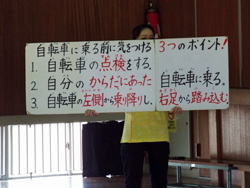 自転車に乗る前に気をつける 3つのポイント!
1. 自転車の点検をする。
2. 自分の からだにあった 自転車に乗る。
3. 自転車の左側から乗り降りし、右足から踏み込む。